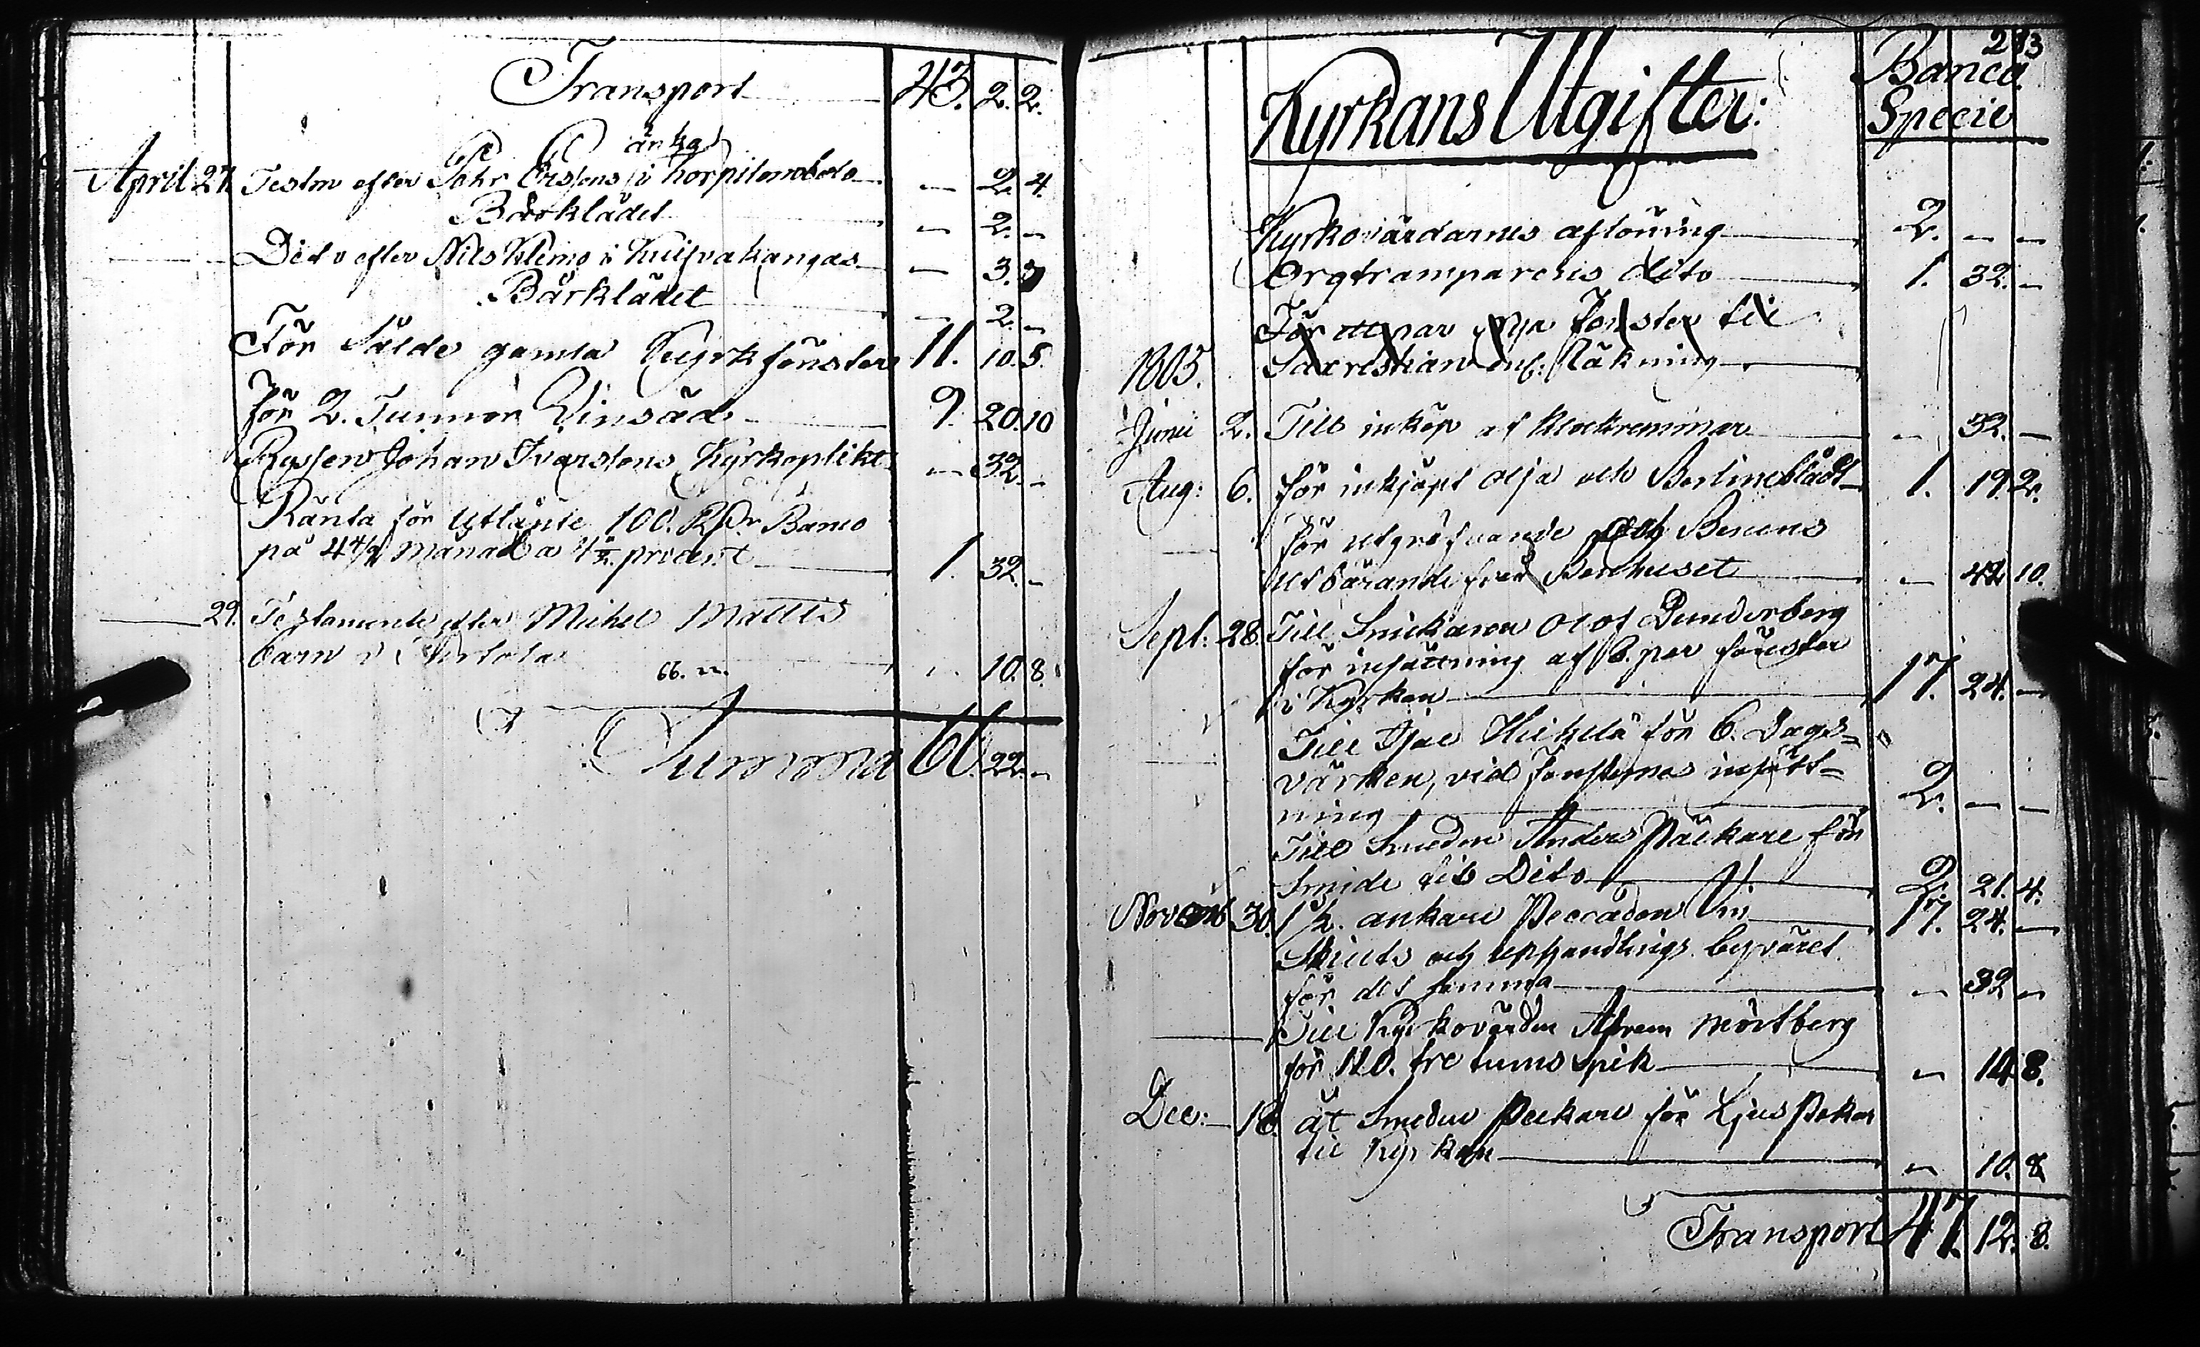 Transport 43. 2. 2.
änka
April 27. Testm efter Pehr Erssons i Korpilombolo — 2. 4.
Bårklädet — 2. —
Dito efter Nils Klemo i Kuifvakangas — 3. 7
Bårklädet — 2. —
För Sålde gamla Kyrkfönster 11. 10. 5.
för 2. Tunnor Linsäd 9. 20. 10
Ryssen Johan Ivarssons Kyrkoplikt — 32. —
Ränta för Utlånte 100. RDr Banco
på 4 månad a procent 1. 32. —
29. Testamente efter Michel Mattis
barn i — 10. 8.
66. 22.
Summa 66. 22. —
213
Kyrkans Utgifter:
Banco
Specie
Kyrkovärdarnes aflöning 2. — —
Orgtramparens dito 1. 32. —
För ett par nya fönster til
Sacristian enl. Räkning
1805.
Junii 2. Till inköp af klockremmar — 32. —
Aug: 6. för inkjöpt olja och Berlinerblådt 1. 19. 2.
för utgräfvande och Benens
utbärande från Benhuset — 42. 10.
Sept: 28. Till Snickaren Olof Dunderberg
för insättning af 6. par fönster
i Kyrkan 17. 24. —
Till Hiekila för 6. Dags=
värken, vid fensternas insätt=
ning 2. — —
Till Smeden Anders Päckare för
Smide til Dito 2. 21. 4.
Novemb 30. 1½. ankare Peccadon Vin 17. 24. —
Skjuts och upphandlings besväret
för det samma — 32 —
Till Kyrkovärden Abram Mörtberg
för 110. tre tums spik — 14. 8.
Dec: 18. åt Smeden Peckare för Ljus Pekor
til Kyrkan — 10. 8
Transport 47. 12. 8.